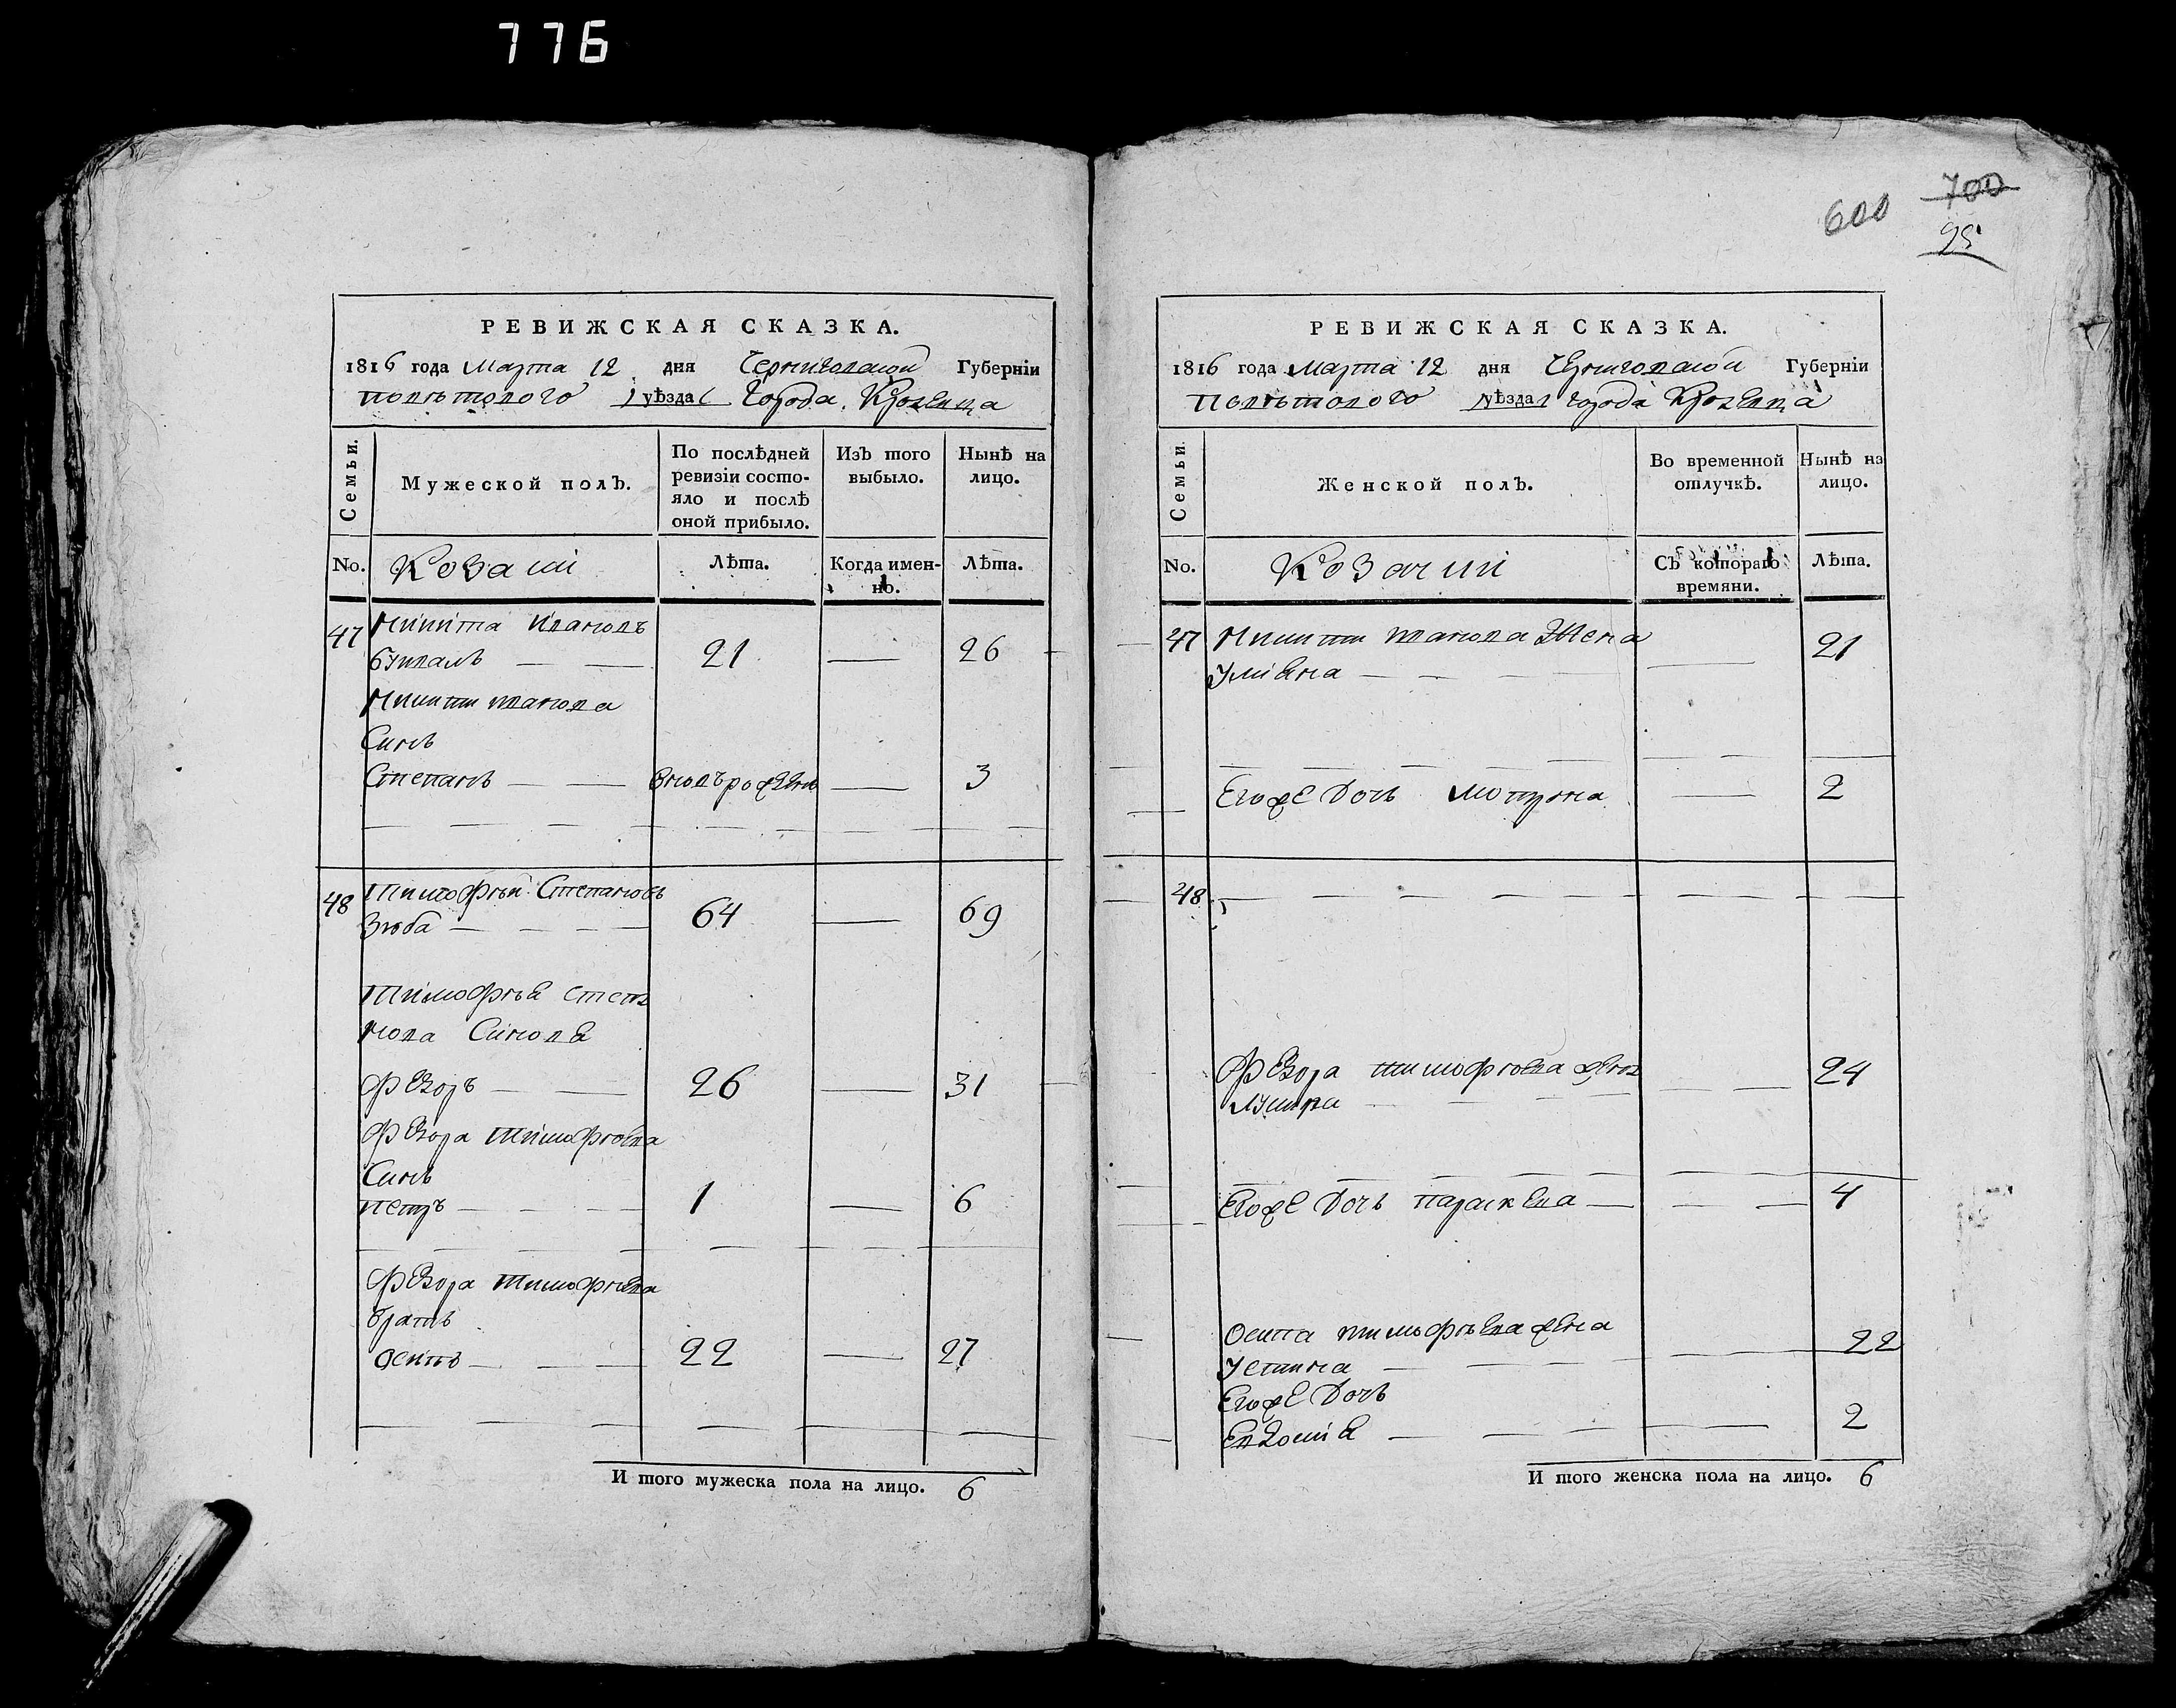 776
600
700
95
РЕВИЖСКАЯ СКАЗКА.
1816 года Марта 12 дня Черниговской Губерніи
Поветового уѣзда города Кролевца
Семьи.
Мужеской полъ.
По послѣдней ревизіи состо-
яло и послѣ
оной прибыло.
Изъ того выбыло.
Нынѣ на лицо.
No. Козаки Лѣта. Когда имен-
но. Лѣта.
47 Никита Ивановъ
21 26
Никити Иванова
Синъ
Степанъ вновърожденъ 3
48 Тимофѣй Степановъ
Зюба 64 69
Тимофѣя Степа
нова Синовя
Федоръ 26 31
Федора Тимофѣева
Синъ
Петръ 1 6
Федора Тимофѣева
братъ
Осипъ 22 27
И того мужеска пола на лицо. 6
РЕВИЖСКАЯ СКАЗКА.
1816 года Марта 12 дня Черниговской Губерніи
Поветового уѣзда города Кролевца
Семьи.
Женской полъ.
Во временной
отлучкѣ.
Нынѣ на
лицо.
No. Козачки Съ котораго
времяни. Лѣта.
47 Никити Иванова Жена
Улияна 21
Егоже Дочь Мотрона 2
48
Федора Тимофѣева жена
24
Егоже Дочь Параскева 4
Осипа Тимофѣева жена
Устина 22
Егоже Дочь
Евдокия 2
И того женска пола на лицо. 6